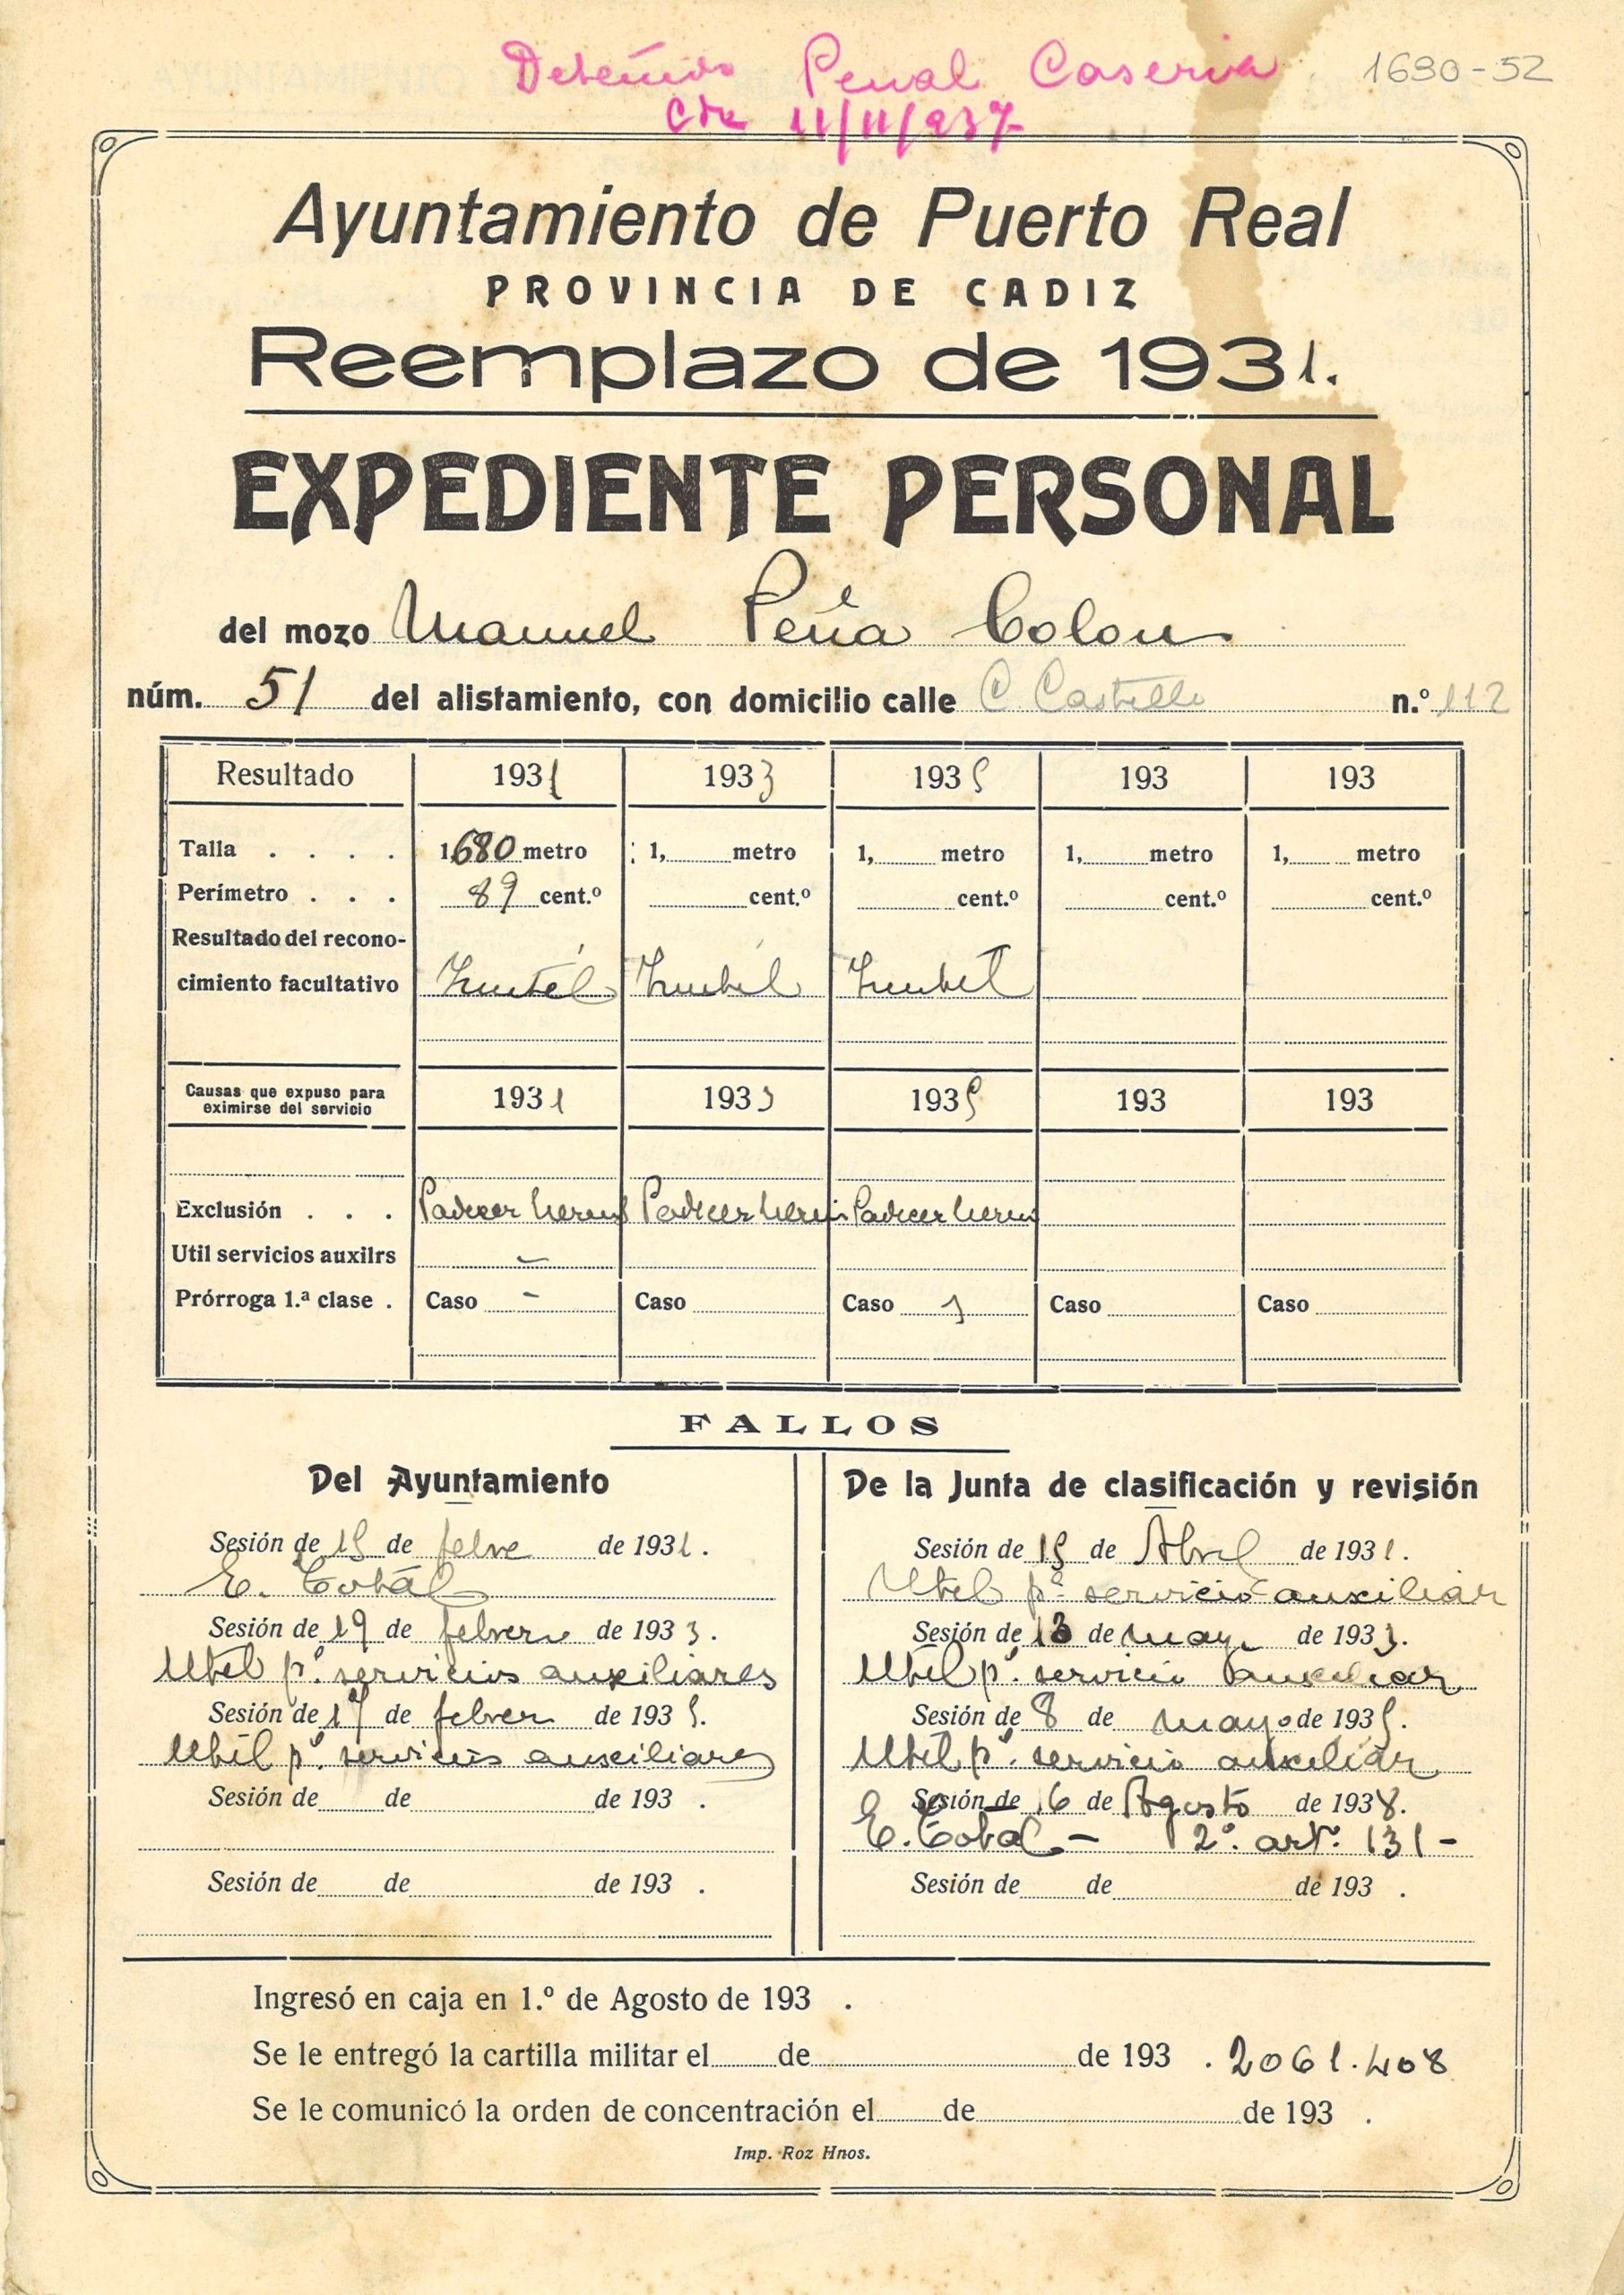 Detenido Penal Caseria 1680-52
Cdz 11/11/937-
Ayuntamiento de Puerto Real
PROVINCIA DE CADIZ
Reemplazo de 1931.
EXPEDIENTE PERSONAL
del mozo Manuel Peña Colon
núm. 51 del alistamiento, con domicilio calle C. Castillo n.º 112
Resultado 1931 1933 1935 193 193
Talla . . . . 1,680 metro 1, metro 1, metro 1, metro 1, metro
Perímetro . . . 89 cent.º cent.º cent.º cent.º cent.º
Resultado del recono-
cimiento facultativo Inutil Inutil Inutil
Causas que expuso para
eximirse del servicio 1931 1933 1935 193 193
Exclusión . . . Padecer herni Padecer herni Padecer herni
Util servicios auxilrs -
Prórroga 1.ª clase . Caso - Caso Caso 1 Caso Caso
FALLOS
Del Ayuntamiento De la Junta de clasificación y revisión
Sesión de 15 de febro de 1931.
E. Total
Sesión de 19 de febrero de 1933.
Util pª servicios auxiliares
Sesión de 17 de febrero de 1935.
Util pª servicios auxiliares
Sesión de de de 193 .
Sesión de de de 193 .
Sesión de 15 de Abril de 1931.
Util pª servicio auxiliar
Sesión de 13 de mayo de 1933.
Util pª servicio auxiliar
Sesión de 8 de mayo de 1935.
Util pª servicio auxiliar
Sesión de 16 de Agosto de 1938.
E. Total - 2º. artº. 131-
Sesión de de de 193 .
Ingresó en caja en 1.º de Agosto de 193 .
Se le entregó la cartilla militar el de de 193 . 2061.408
Se le comunicó la orden de concentración el de de 193 .
Imp. Roz Hnos.